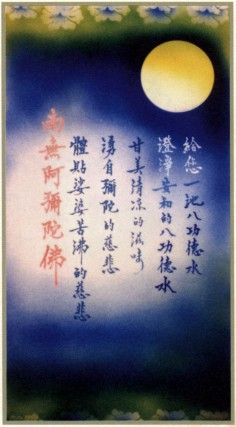 給您一池八功德水
澄淨安和的八功德水
甘美清涼的滋味
湧自彌陀的慈悲
體貼娑婆苦沸的慈悲
南無阿彌陀佛